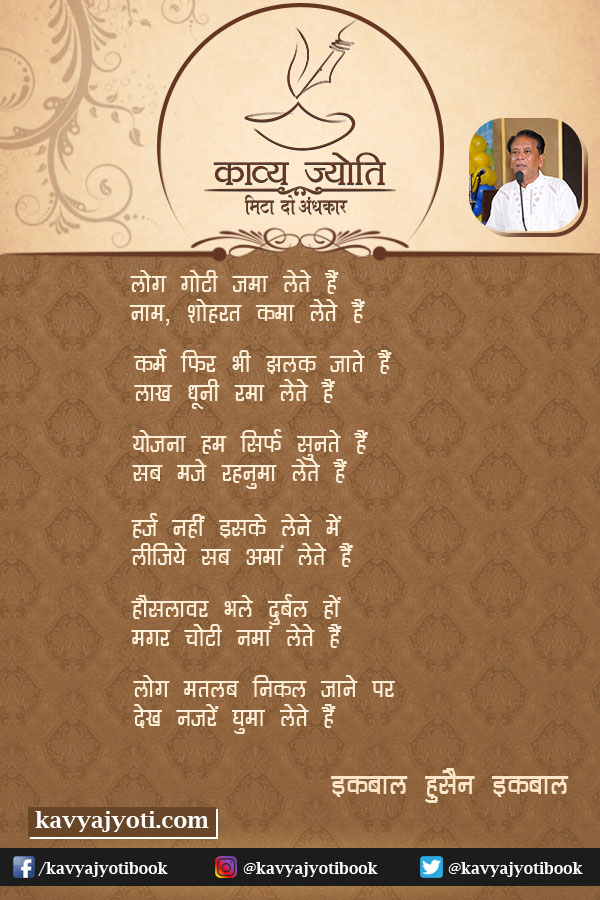 काव्य ज्योति
मिटा दो अंधकार
लोग गोटी जमा लेते हैं
नाम, शोहरत कमा लेते हैं
कर्म फिर भी झलक जाते हैं
लाख धूनी रमा लेते हैं
योजना हम सिर्फ सुनते हैं
सब मजे रहनुमा लेते हैं
हर्ज नहीं इसके लेने में
लीजिये सब अमां लेते हैं
हौसलावर भले दुर्बल हों
मगर चोटी नमां लेते हैं
लोग मतलब निकल जाने पर
देख नजरें घुमा लेते हैं
इकबाल हुसैन इकबाल
kavyajyoti.com
/kavyajyotibook @kavyajyotibook @kavyajyotibook